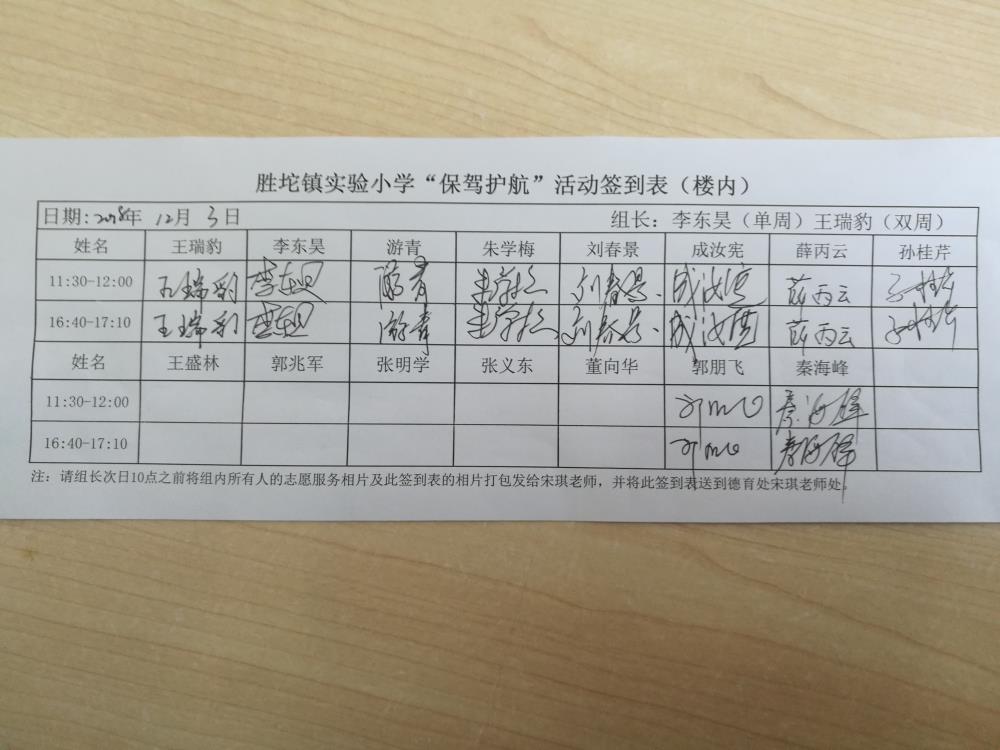 胜坨镇实验小学“保驾护航”活动签到表（楼内）
日期: 2018年 12月 3日 组长: 李东昊（单周）王瑞豹（双周）
姓名 王瑞豹 李东昊 游青 朱学梅 刘春景 成汝宪 薛丙云 孙桂芹
11:30-12:00 王瑞豹 李东昊 游青 朱学梅 刘春景 成汝宪 薛丙云 孙桂芹
16:40-17:10 王瑞豹 李东昊 游青 朱学梅 刘春景 成汝宪 薛丙云 孙桂芹
姓名 王盛林 郭兆军 张明学 张义东 董向华 郭朋飞 秦海峰
11:30-12:00 秦海峰
16:40-17:10 秦海峰
注: 请组长次日10点之前将组内所有人的志愿服务相片及此签到表的相片打包发给宋琪老师，并将此签到表送到德育处宋琪老师处。